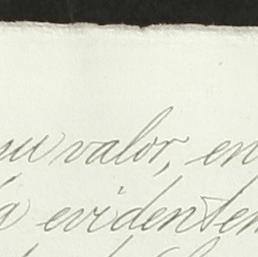 su valor, en
a evidentem